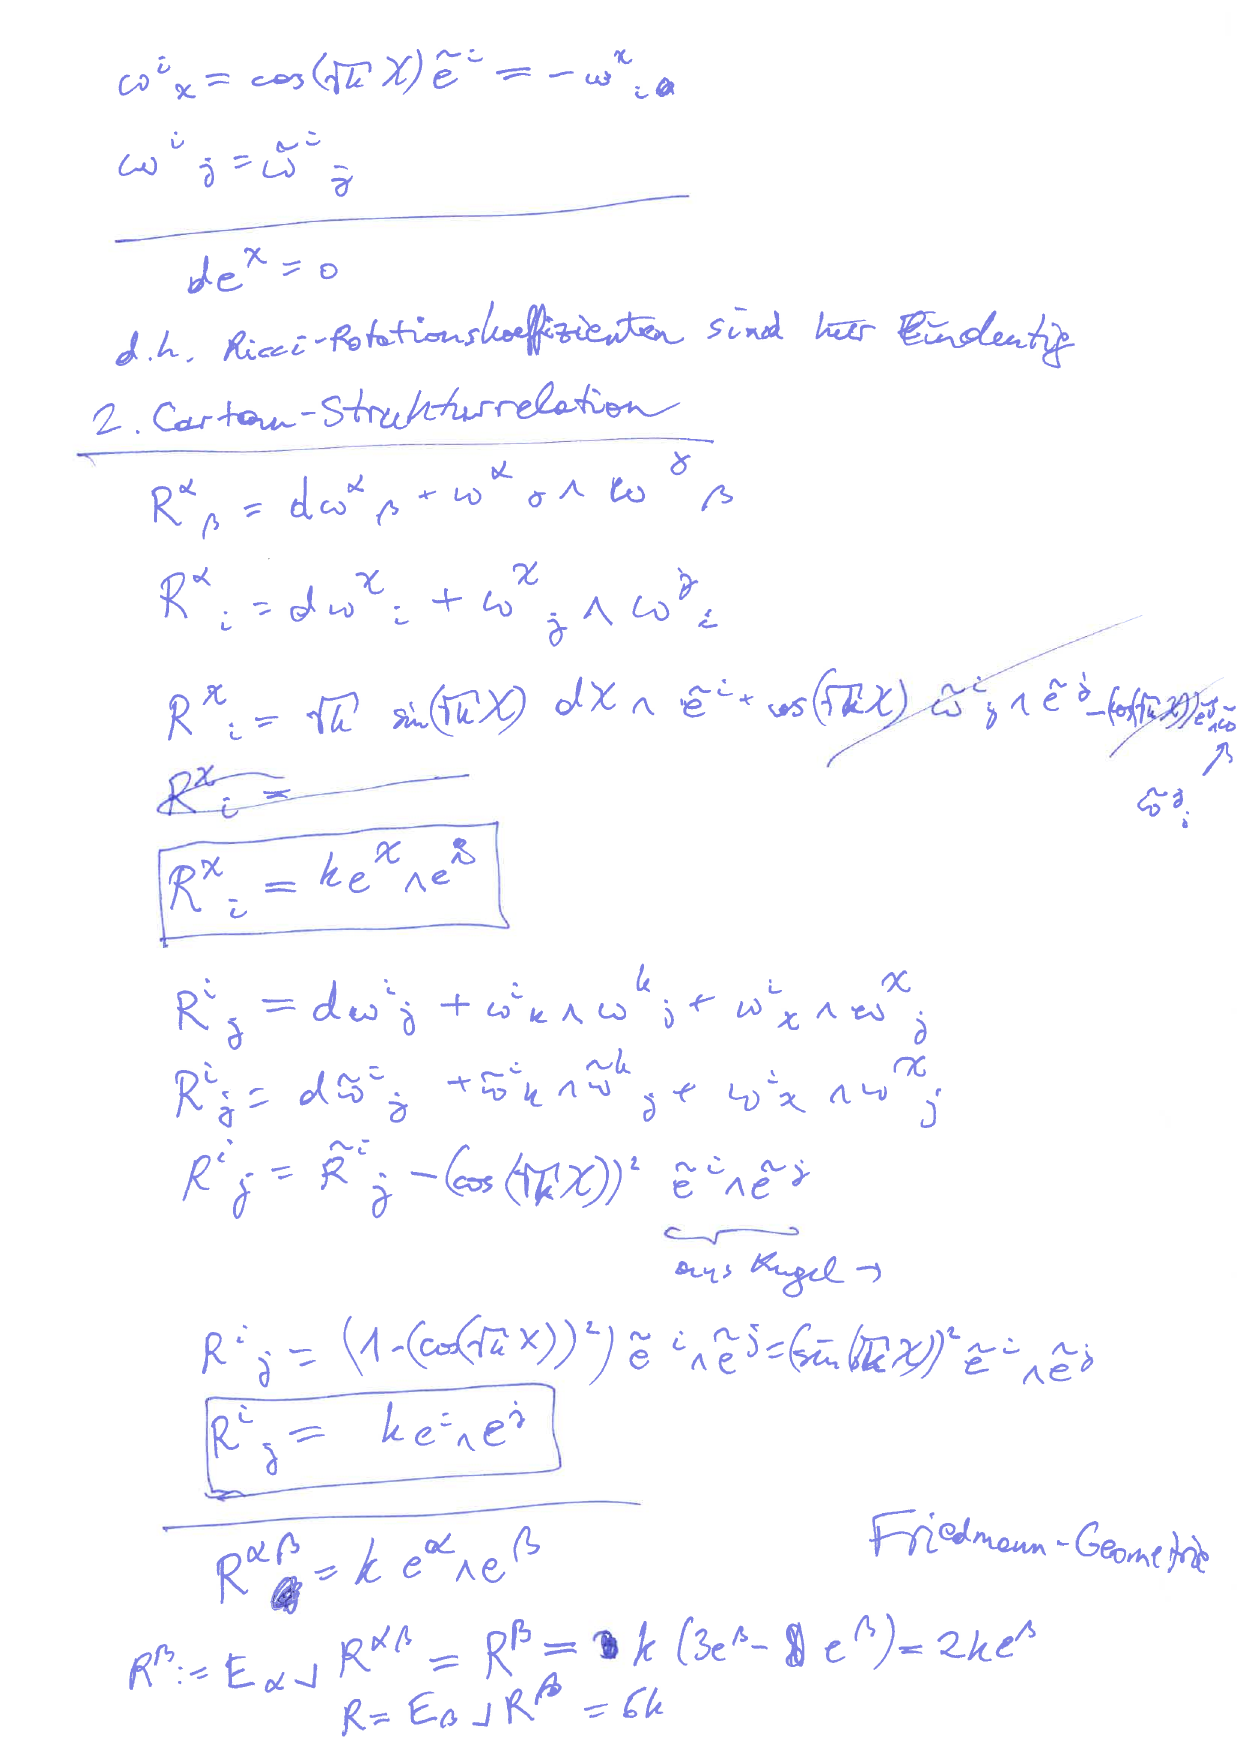 ω^i_χ = cos(√k χ) ẽ^i = -ω^χ_i
ω^i_j = ω̃^i_j
de^χ = 0
d.h. Ricci-Rotationskoeffizienten sind hier Eindeutig
2. Cartan-Strukturrelation
R^α_β = dω^α_β + ω^α_γ ∧ ω^γ_β
R^α_i = dω^χ_i + ω^χ_j ∧ ω^j_i
R^χ_i = √k sin(√k χ) dχ ∧ ẽ^i + cos(√k χ) ω̃^i_j ∧ ẽ^j - (cos(√k χ)) ẽ^j ∧ ω̃
ω̃^j_i
R^χ_i =
R^χ_i = k e^χ ∧ e^i
R^i_j = dω^i_j + ω^i_k ∧ ω^k_j + ω^i_χ ∧ ω^χ_j
R^i_j = dω̃^i_j + ω̃^i_k ∧ ω̃^k_j + ω^i_χ ∧ ω^χ_j
R^i_j = R̃^i_j - (cos(√k χ))² ẽ^i ∧ ẽ^j
aus Kugel →
R^i_j = (1-(cos(√k χ))²) ẽ^i ∧ ẽ^j = (sin(√k χ))² ẽ^i ∧ ẽ^j
R^i_j = k e^i ∧ e^j
R^{αβ} = k e^α ∧ e^β
Friedmann-Geometrie
R^β := E_α ⌟ R^{αβ} = R^β = k (3e^β - e^β) = 2ke^β
R = E_β ⌟ R^β = 6k